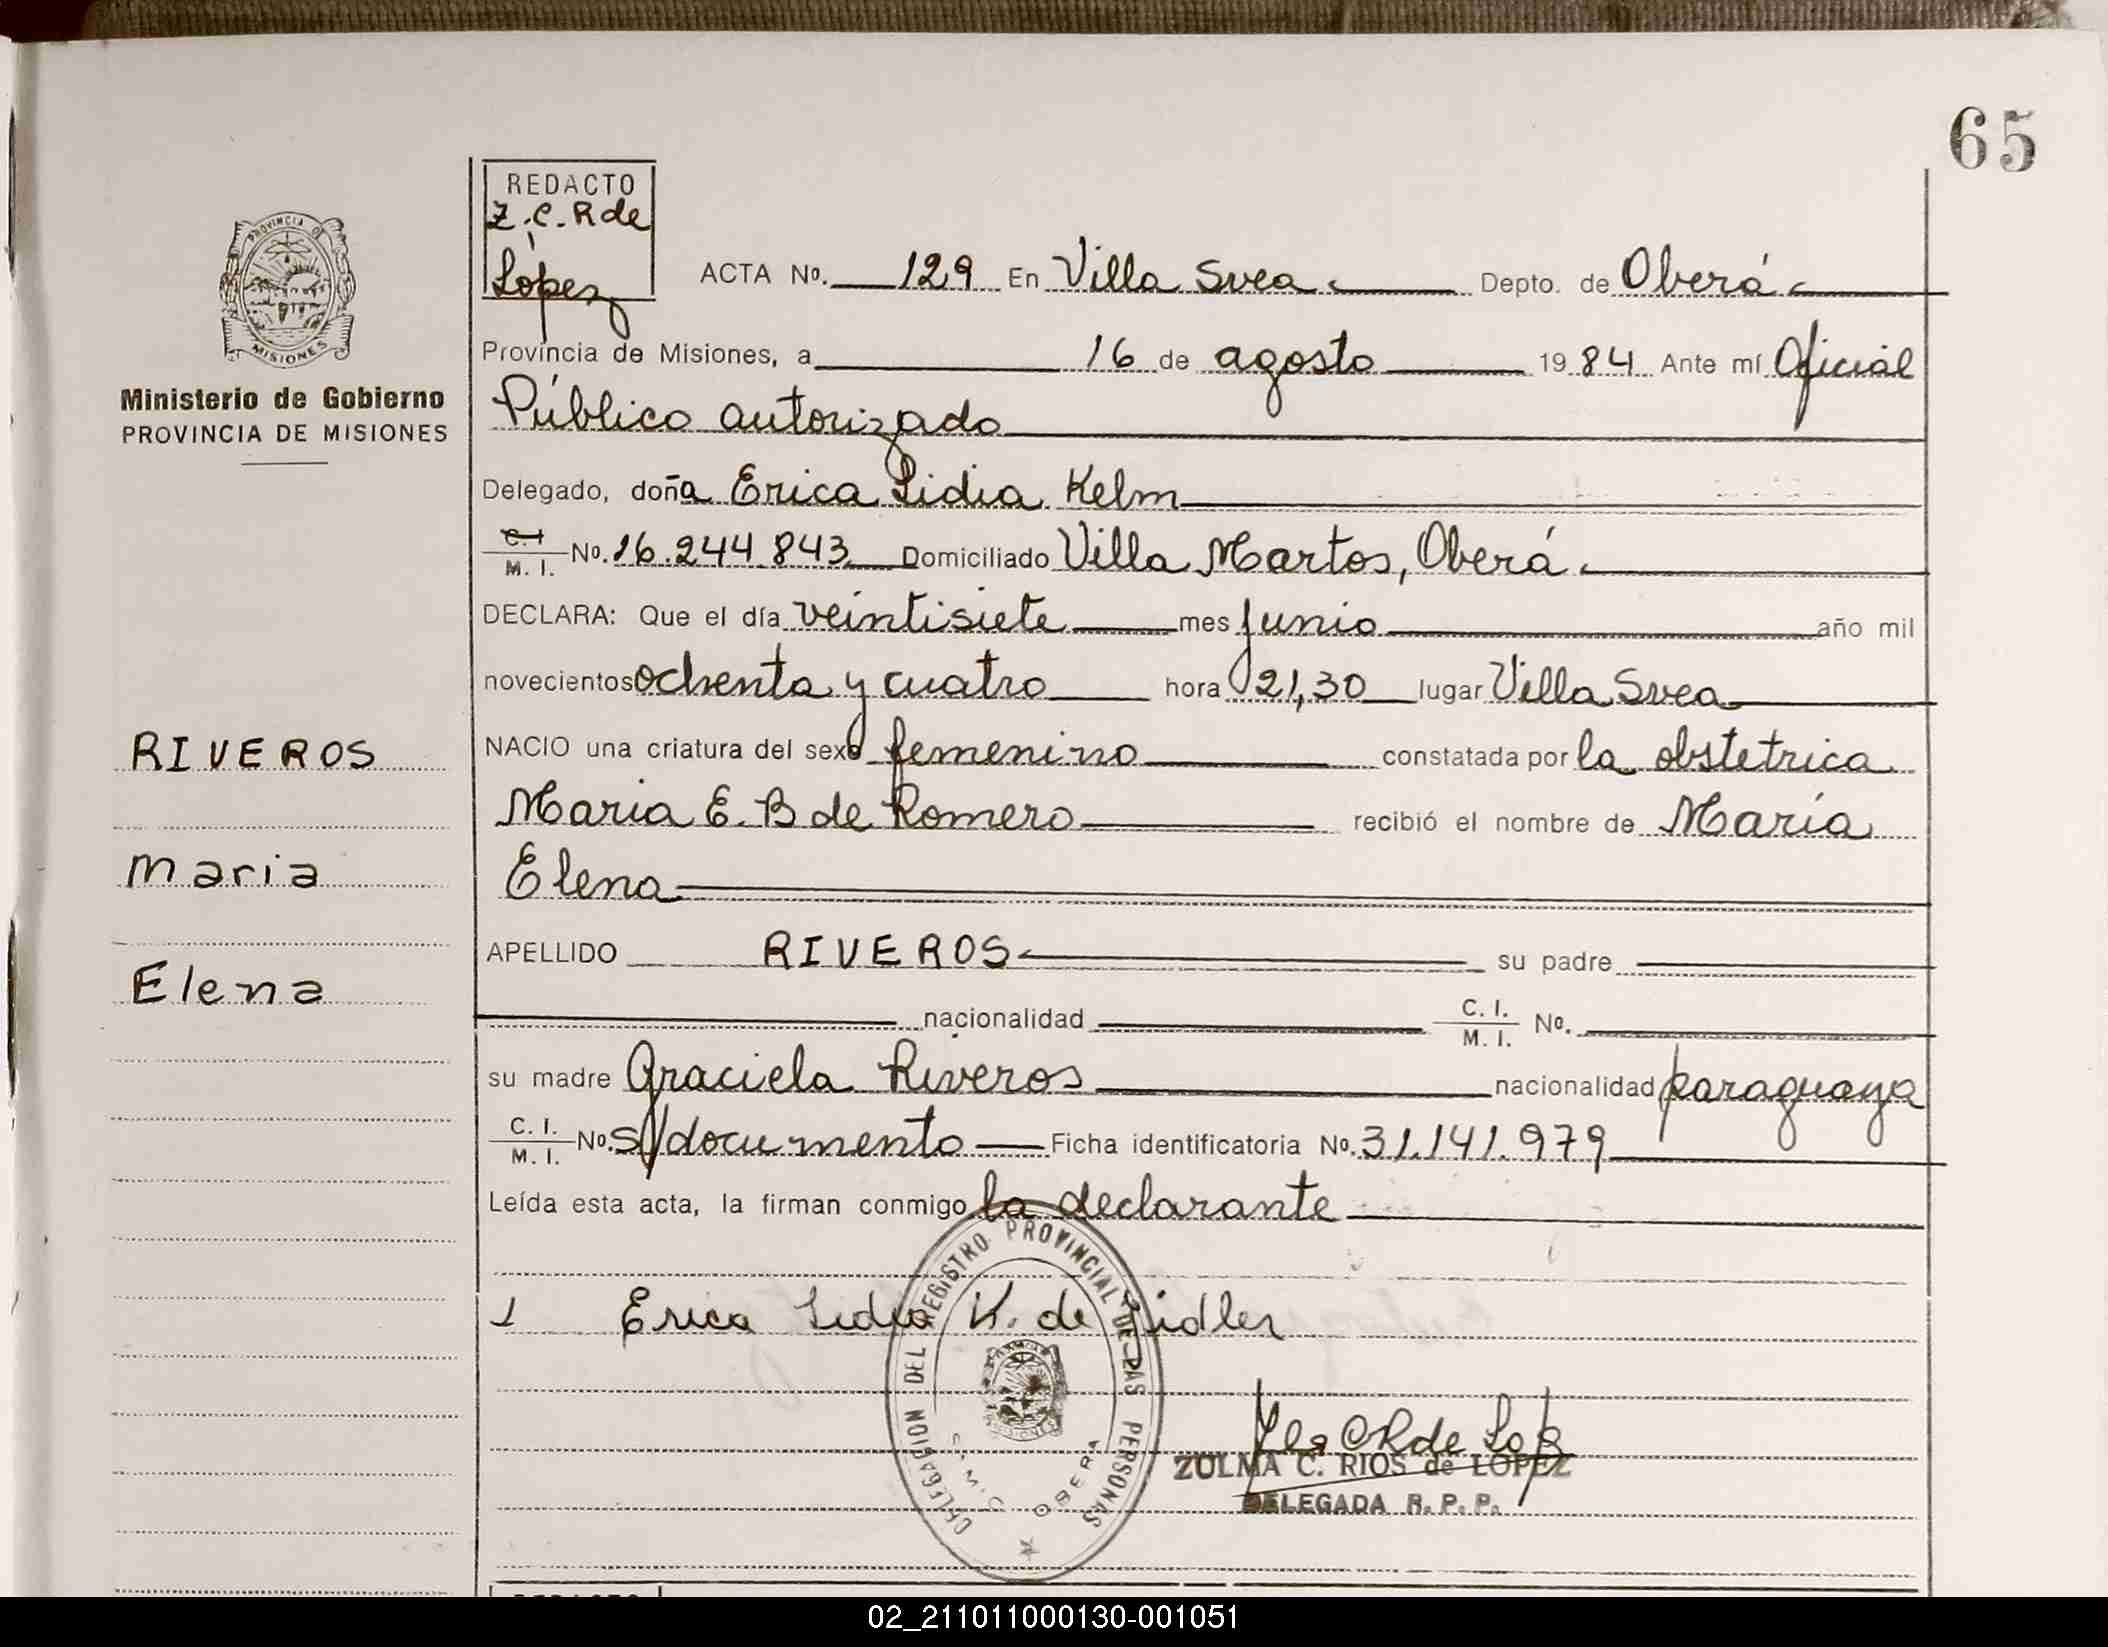 65
REDACTO
Z.C.R de
López
ACTA No. 129 En Villa Svea Depto. de Oberá
Provincia de Misiones, a 16 de agosto 1984 Ante mí Oficial
Público autorizado
Delegado, doña Erica Lidia Kelm
C.I M.I. No. 16.244.843 Domiciliado Villa Martos, Oberá.
DECLARA: Que el día veintisiete mes junio año mil
novecientos ochenta y cuatro hora 21,30 lugar Villa Svea
NACIO una criatura del sexo femenino constatada por la obstetrica
Maria E. B de Romero recibió el nombre de María
Elena
APELLIDO RIVEROS su padre
nacionalidad C. I. M. I. No.
su madre Graciela Riveros nacionalidad paraguaya
C. I. M. I. No. S/documento Ficha identificatoria No. 31.141.979
Leída esta acta, la firman conmigo la declarante
Erica Lidia K. de Lidler
ZULMA C. RIOS de LOPEZ
DELEGADA R. P. P.
DELEGACION DEL REGISTRO PROVINCIAL DE LAS PERSONAS
OBERA
PROVINCIA DE
MISIONES
Ministerio de Gobierno
PROVINCIA DE MISIONES
RIVEROS
Maria
Elena
02_211011000130-001051